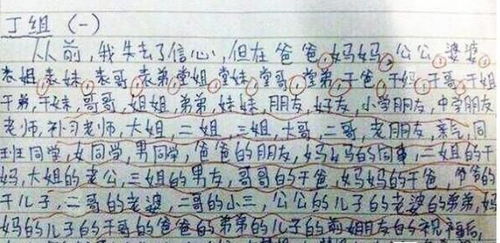 丁组 (一)
从前,我失去了信心,但在爸爸,妈妈,公公,婆婆,
表姐,表妹,表哥,表弟,堂姐,堂妹,堂哥,堂弟,干爸,干妈,干哥,干姐
干弟,干妹,哥哥,姐姐,弟弟,妹妹,朋友,好友,小学朋友,中学朋友
老师,补习老师,大姐,二姐,三姐,大哥,二哥,老朋友,亲戚,同
班同学,女同学,男同学,爸爸的朋友,妈妈的同事,二姐的干
妈,大姐的老公,三姐的男友,哥哥的干爸,妈妈的干爸,爷爷的
干儿子,二哥的老婆,二哥的小三,公公的儿子的老婆的弟弟,妈
妈的儿子的干哥的爸爸的弟弟的儿子的前女朋友的祝福后,